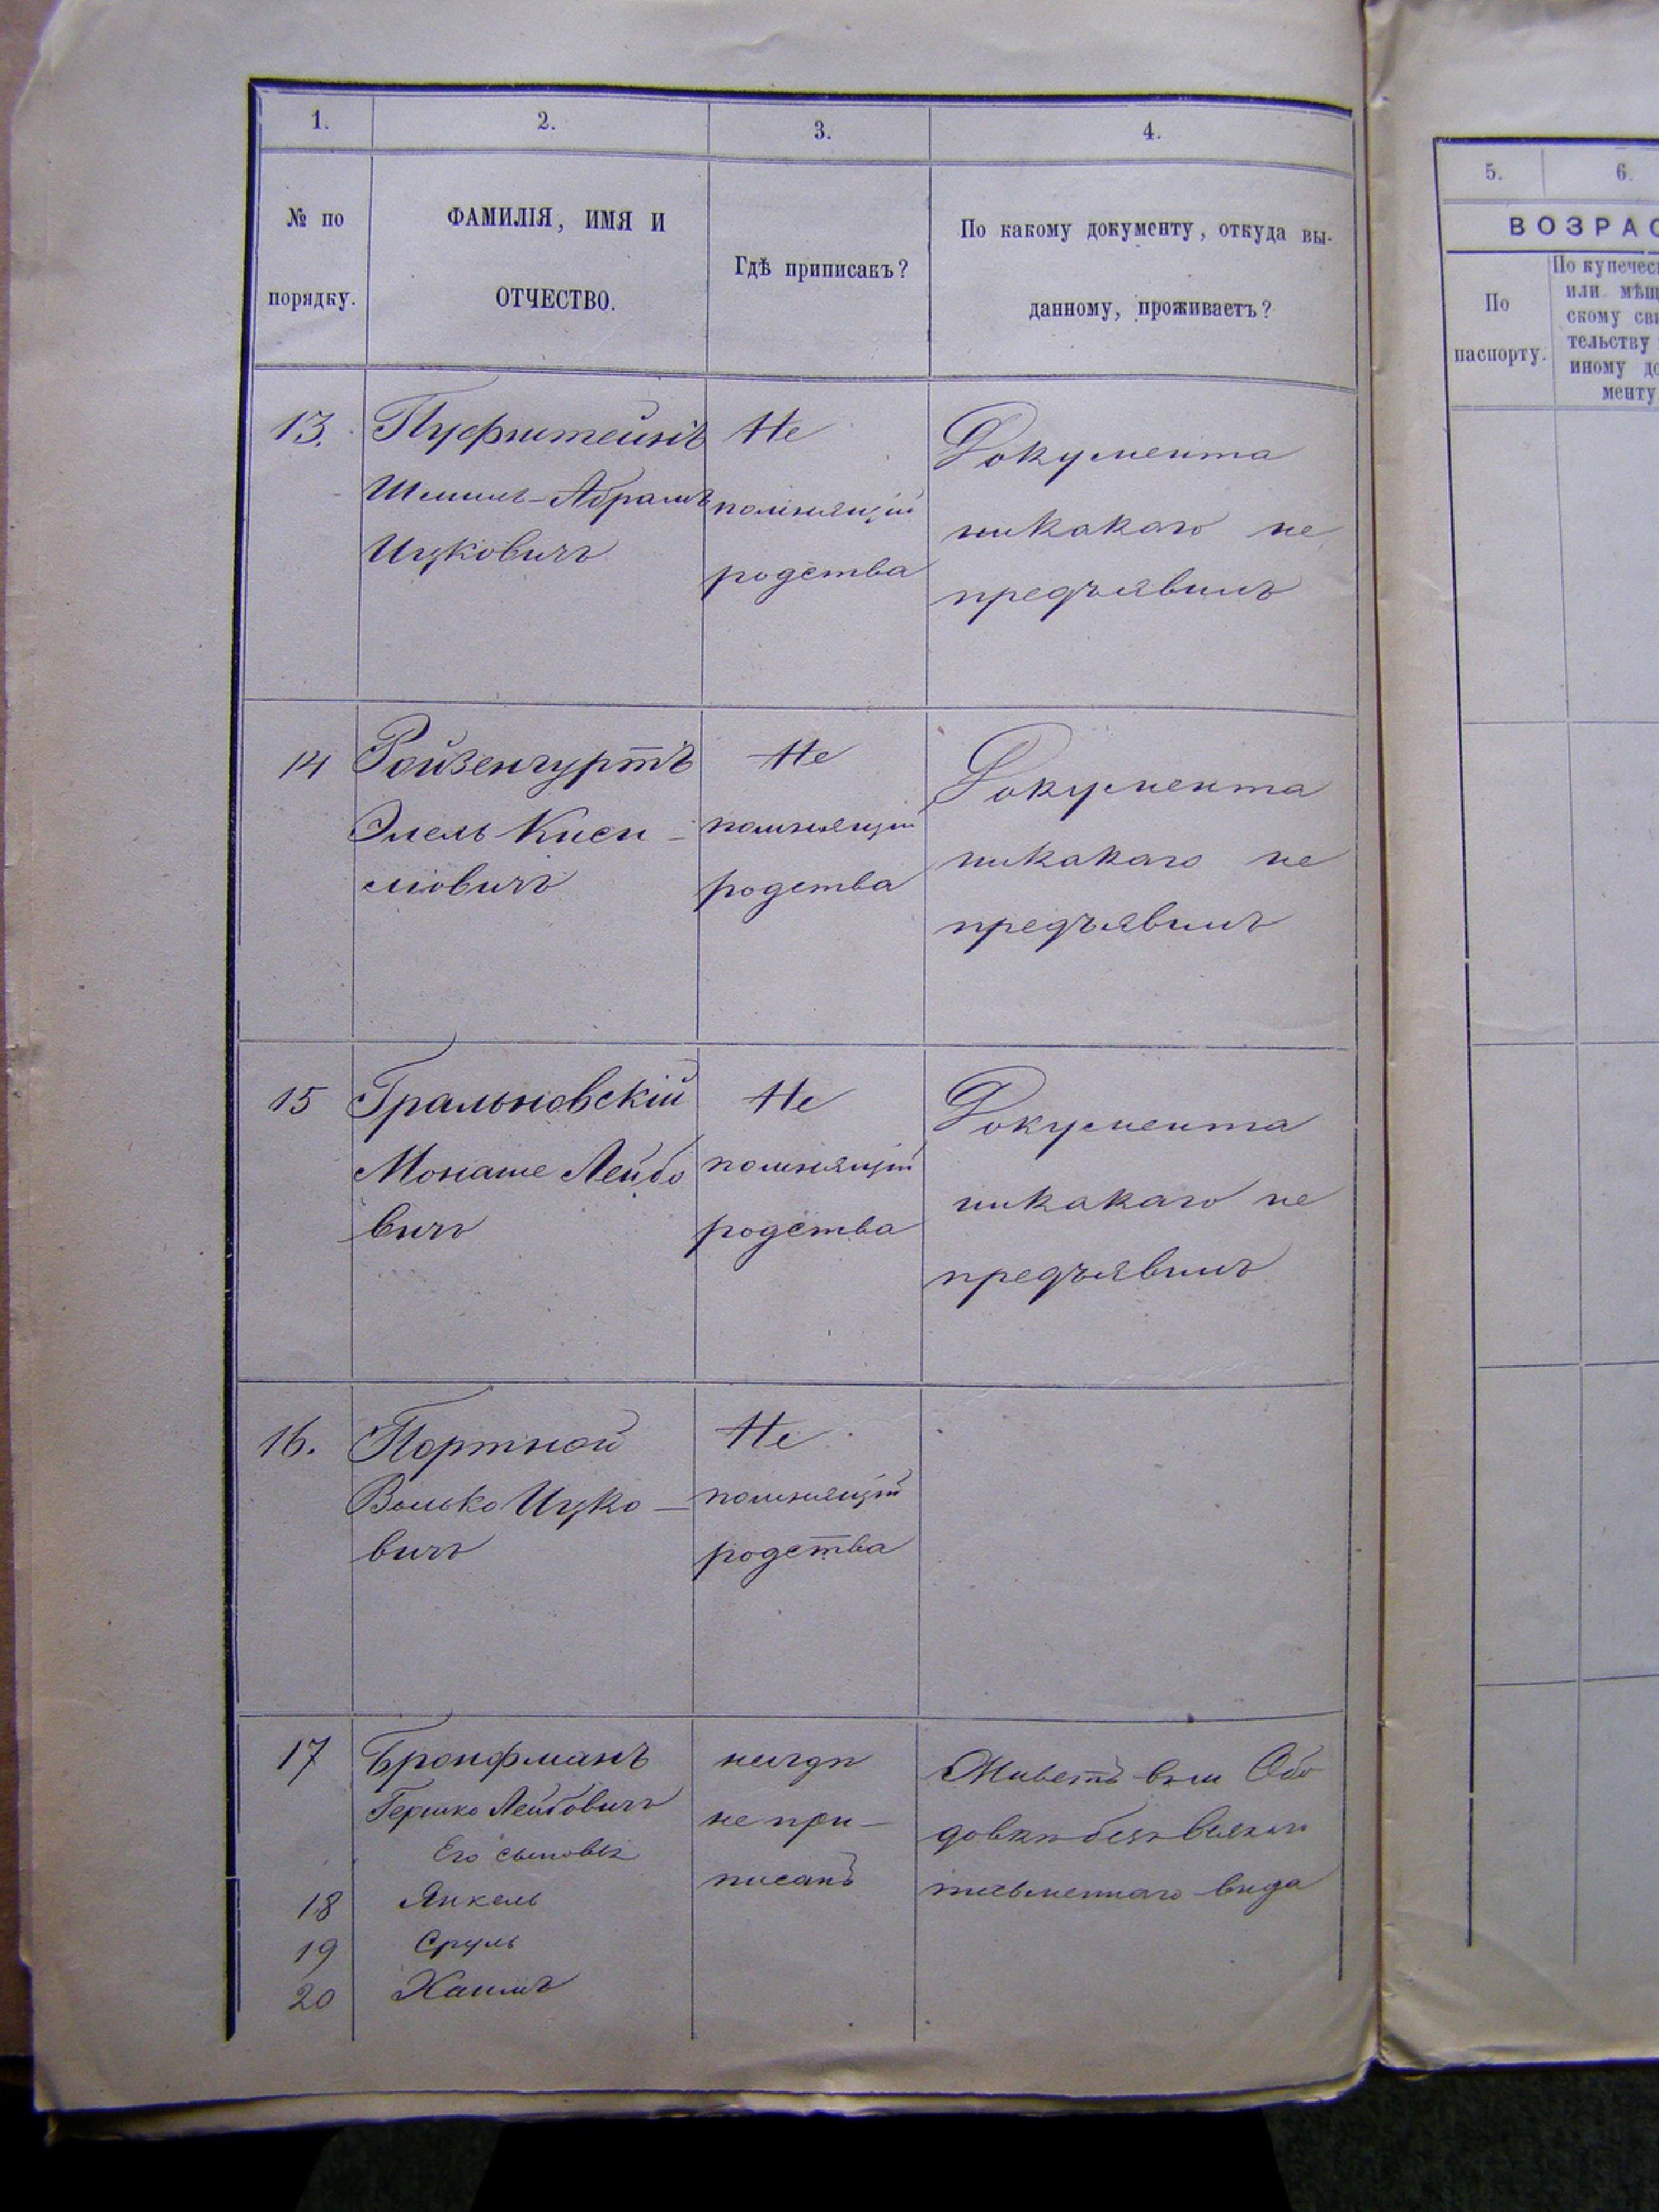 1. 2. 3. 4.
№ по порядку.
ФАМИЛІЯ, ИМЯ И
ОТЧЕСТВО.
Гдѣ приписанъ?
По какому документу, откуда вы-
данному, проживаетъ?
13. Пуфштейнъ
Шмиль-Абрамъ
Ицковичъ
Не
помнящій
родства
Документа
никакаго не
предъявилъ
14 Ройзенгуртъ
Элель Киси-
лiовичъ
Не
помнящій
родства
Документа
никакаго не
предъявилъ
15 Гральновскій
Монаше Лейбо
вичъ
Не
помнящій
родства
Документа
никакаго не
предъявилъ
16. Портной
Волько Ицко-
вичъ
Не
помнящій
родства
17 Бронфманъ
Гершко Лейбовичъ
Его сыновья
18 Янкель
19 Сруль
20 Хаимъ
нигдѣ
не при-
писанъ
Живетъ въ м Обо
довкѣ безъ всякаго
письменнаго вида
5. 6.
ВОЗРАС
По
паспорту.
По купечес
или мѣщ
скому сви
тельству
иному до
менту